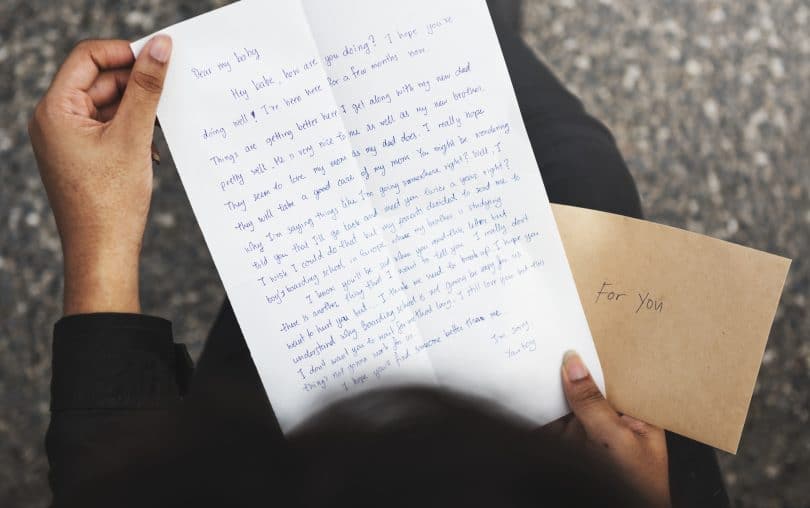 Dear my baby
Hey babe, how are you doing? I hope you're
doing well! I've been here for a few months now.
Things are getting better here I get along with my new dad
pretty well. He is very nice to me as well as my new brother.
They seem to love my mom as my dad does. I really hope
they will take a good case of my mom You might be wondering
why I'm saying things like I'm going somewhere right? Well, I
told you that I'll go back and meet you twice a year right?
I wish I could do that but my parents decided to send me to
boy's boarding school in Europe where my brother is studying
I know you'll be sad when you read this letter but
there is another thing that I want to tell you. I really don't
want to hurt you but.. I think we need to break up. I hope you
understand why. Boarding school is not gonna be easy for us
I don't want you to wait for me that long. I still love you but this
things not gonna work for us.
I hope you'll find someone better than me.
I'm sorry
Your boy
For You